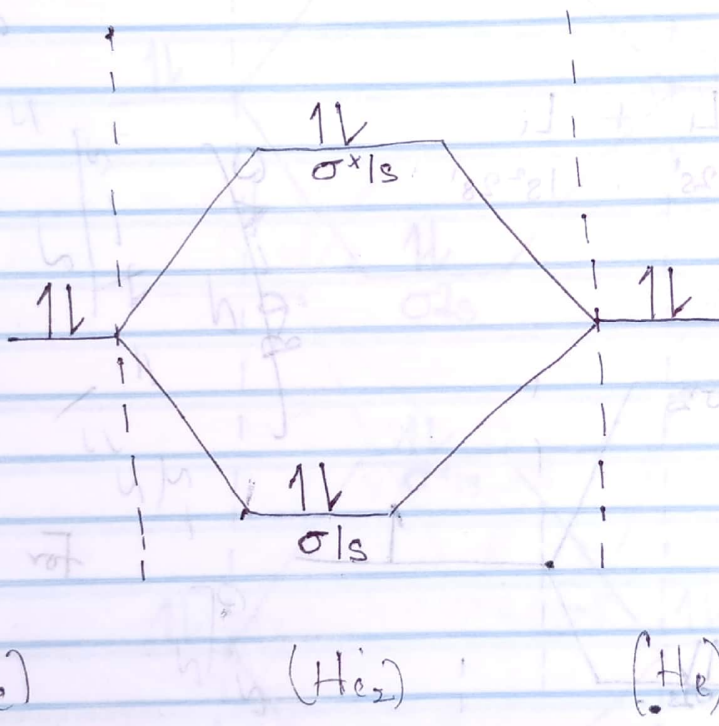 1⇂
σ*1s
1⇂ 1⇂
1⇂
σ1s
(He₂) (He)